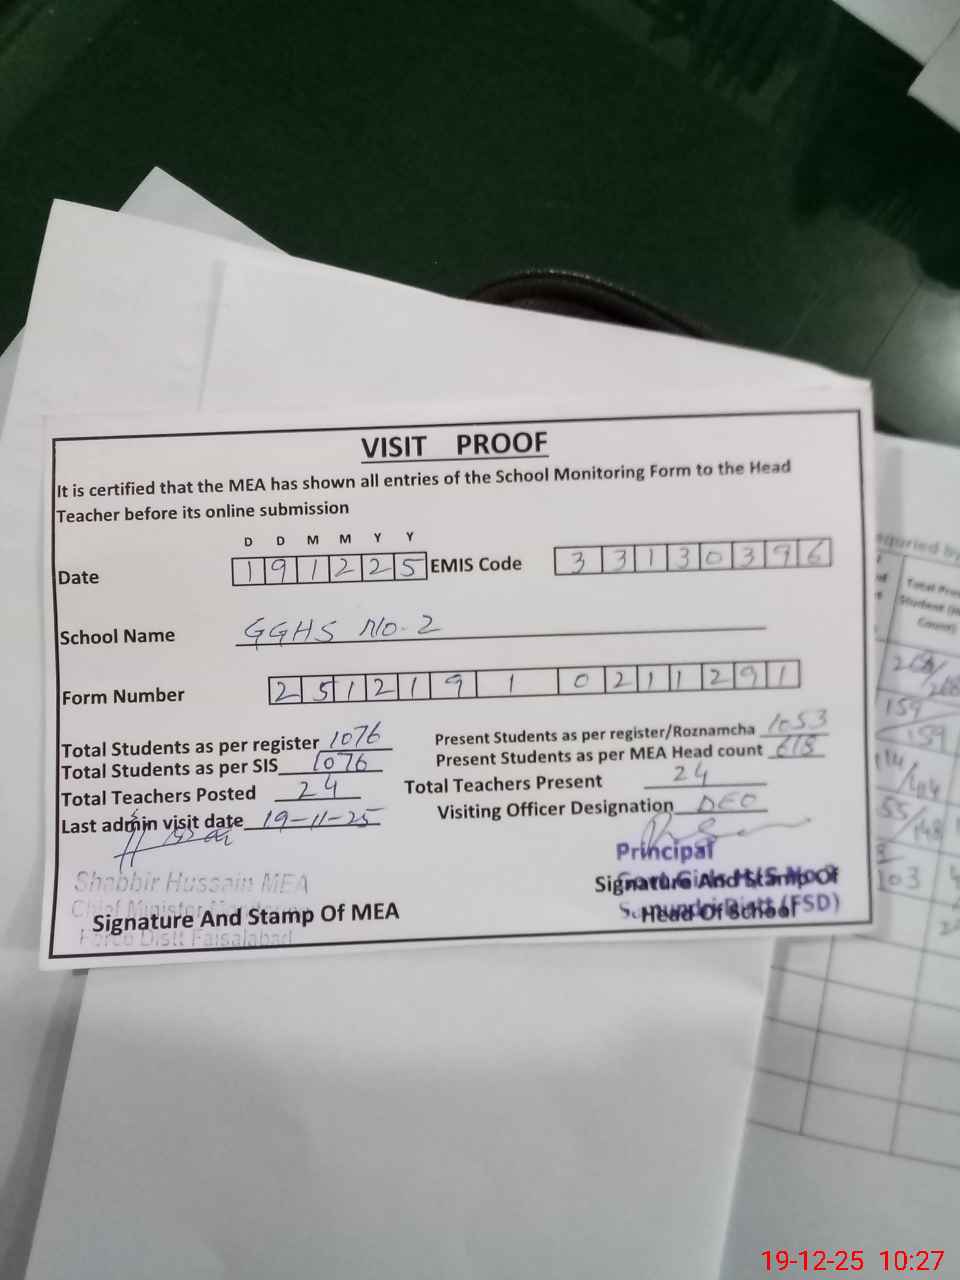 VISIT PROOF
It is certified that the MEA has shown all entries of the School Monitoring Form to the Head
Teacher before its online submission
D D M M Y Y
Date 1 9 1 2 2 5 EMIS Code 3 3 1 3 0 3 9 6
School Name GGHS No. 2
Form Number 2 5 1 2 1 9 1 0 2 1 1 2 9 1
Total Students as per register 1076 Present Students as per register/Roznamcha 1053
Total Students as per SIS 1076 Present Students as per MEA Head count
Total Teachers Posted 24 Total Teachers Present 24
Last admin visit date 19-11-25 Visiting Officer Designation DEO
Principal
Shabbir Hussain MEA
Signature And Stamp Of
Chief Minister Monitoring
Signature And Stamp Of MEA
Head Of School
(FSD)
Force Distt Faisalabad
Total
Student
Count)
159
159
55/148
103
19-12-25 10:27